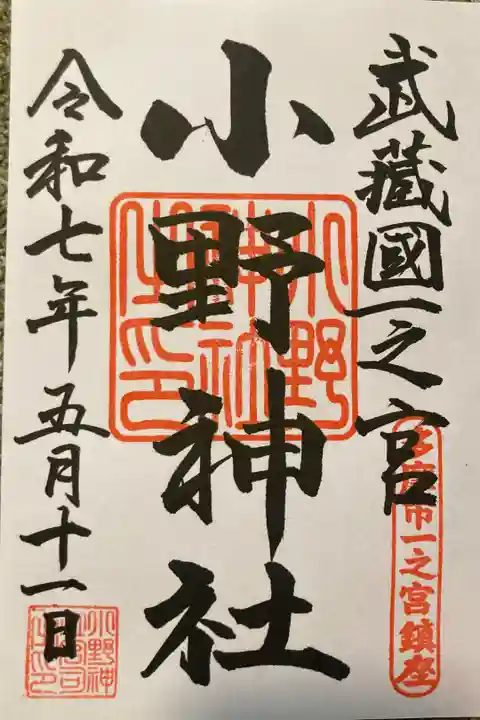 武蔵國一之宮
多摩市一之宮鎮座
小野神社
小野神社之印
令和七年五月十一日
小野神社宮司之印